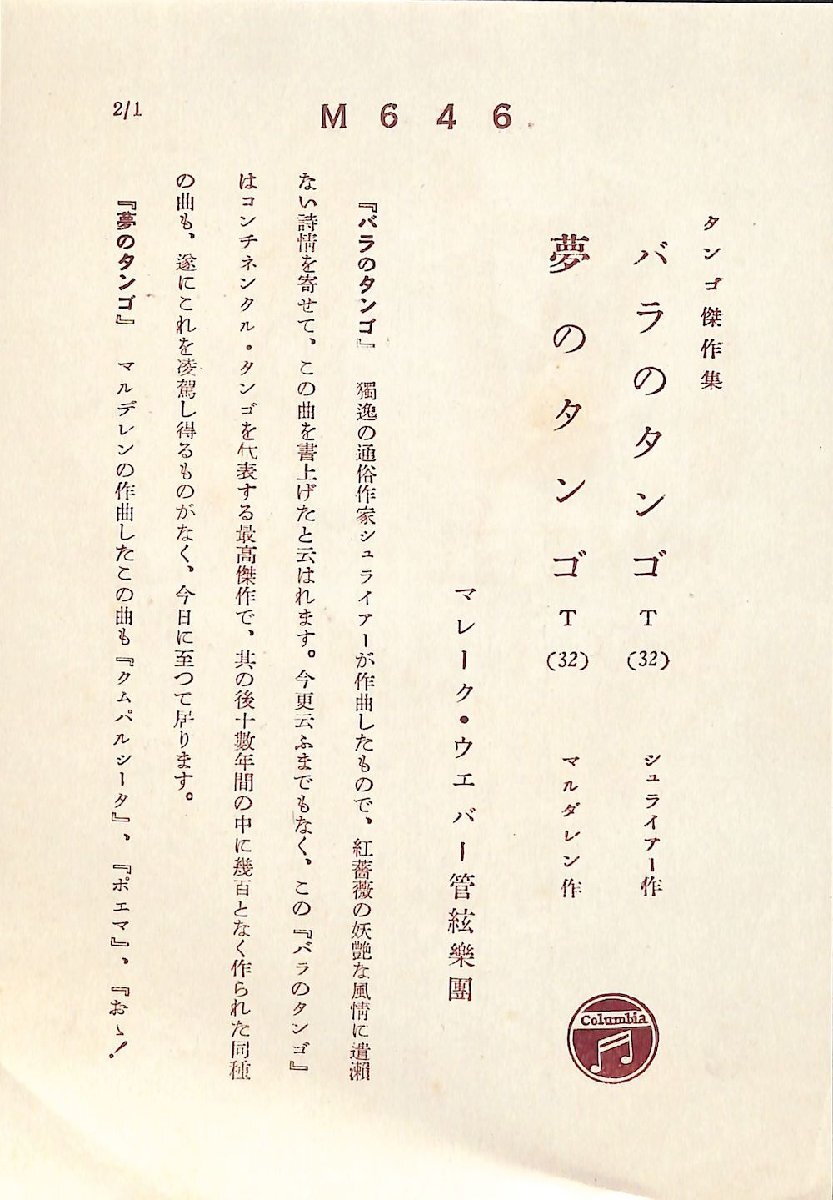 M646
2/1
タンゴ傑作集
バラのタンゴ T (32) シュライアー作
夢のタンゴ T (32) マルダレン作
マレーク・ウエバー管絃樂團
Columbia
『バラのタンゴ』 獨逸の通俗作家シュライアーが作曲したもので、紅薔薇の妖艶な風情に遣瀬
ない詩情を寄せて、この曲を書上げたと云はれます。今更云ふまでもなく、この『バラのタンゴ』
はコンチネンタル・タンゴを代表する最高傑作で、其の後十數年間の中に幾百となく作られた同種
の曲も、遂にこれを凌駕し得るものがなく、今日に至つて居ります。
『夢のタンゴ』 マルデレンの作曲したこの曲も『クムパルシータ』、『ポエマ』、『おゝ!